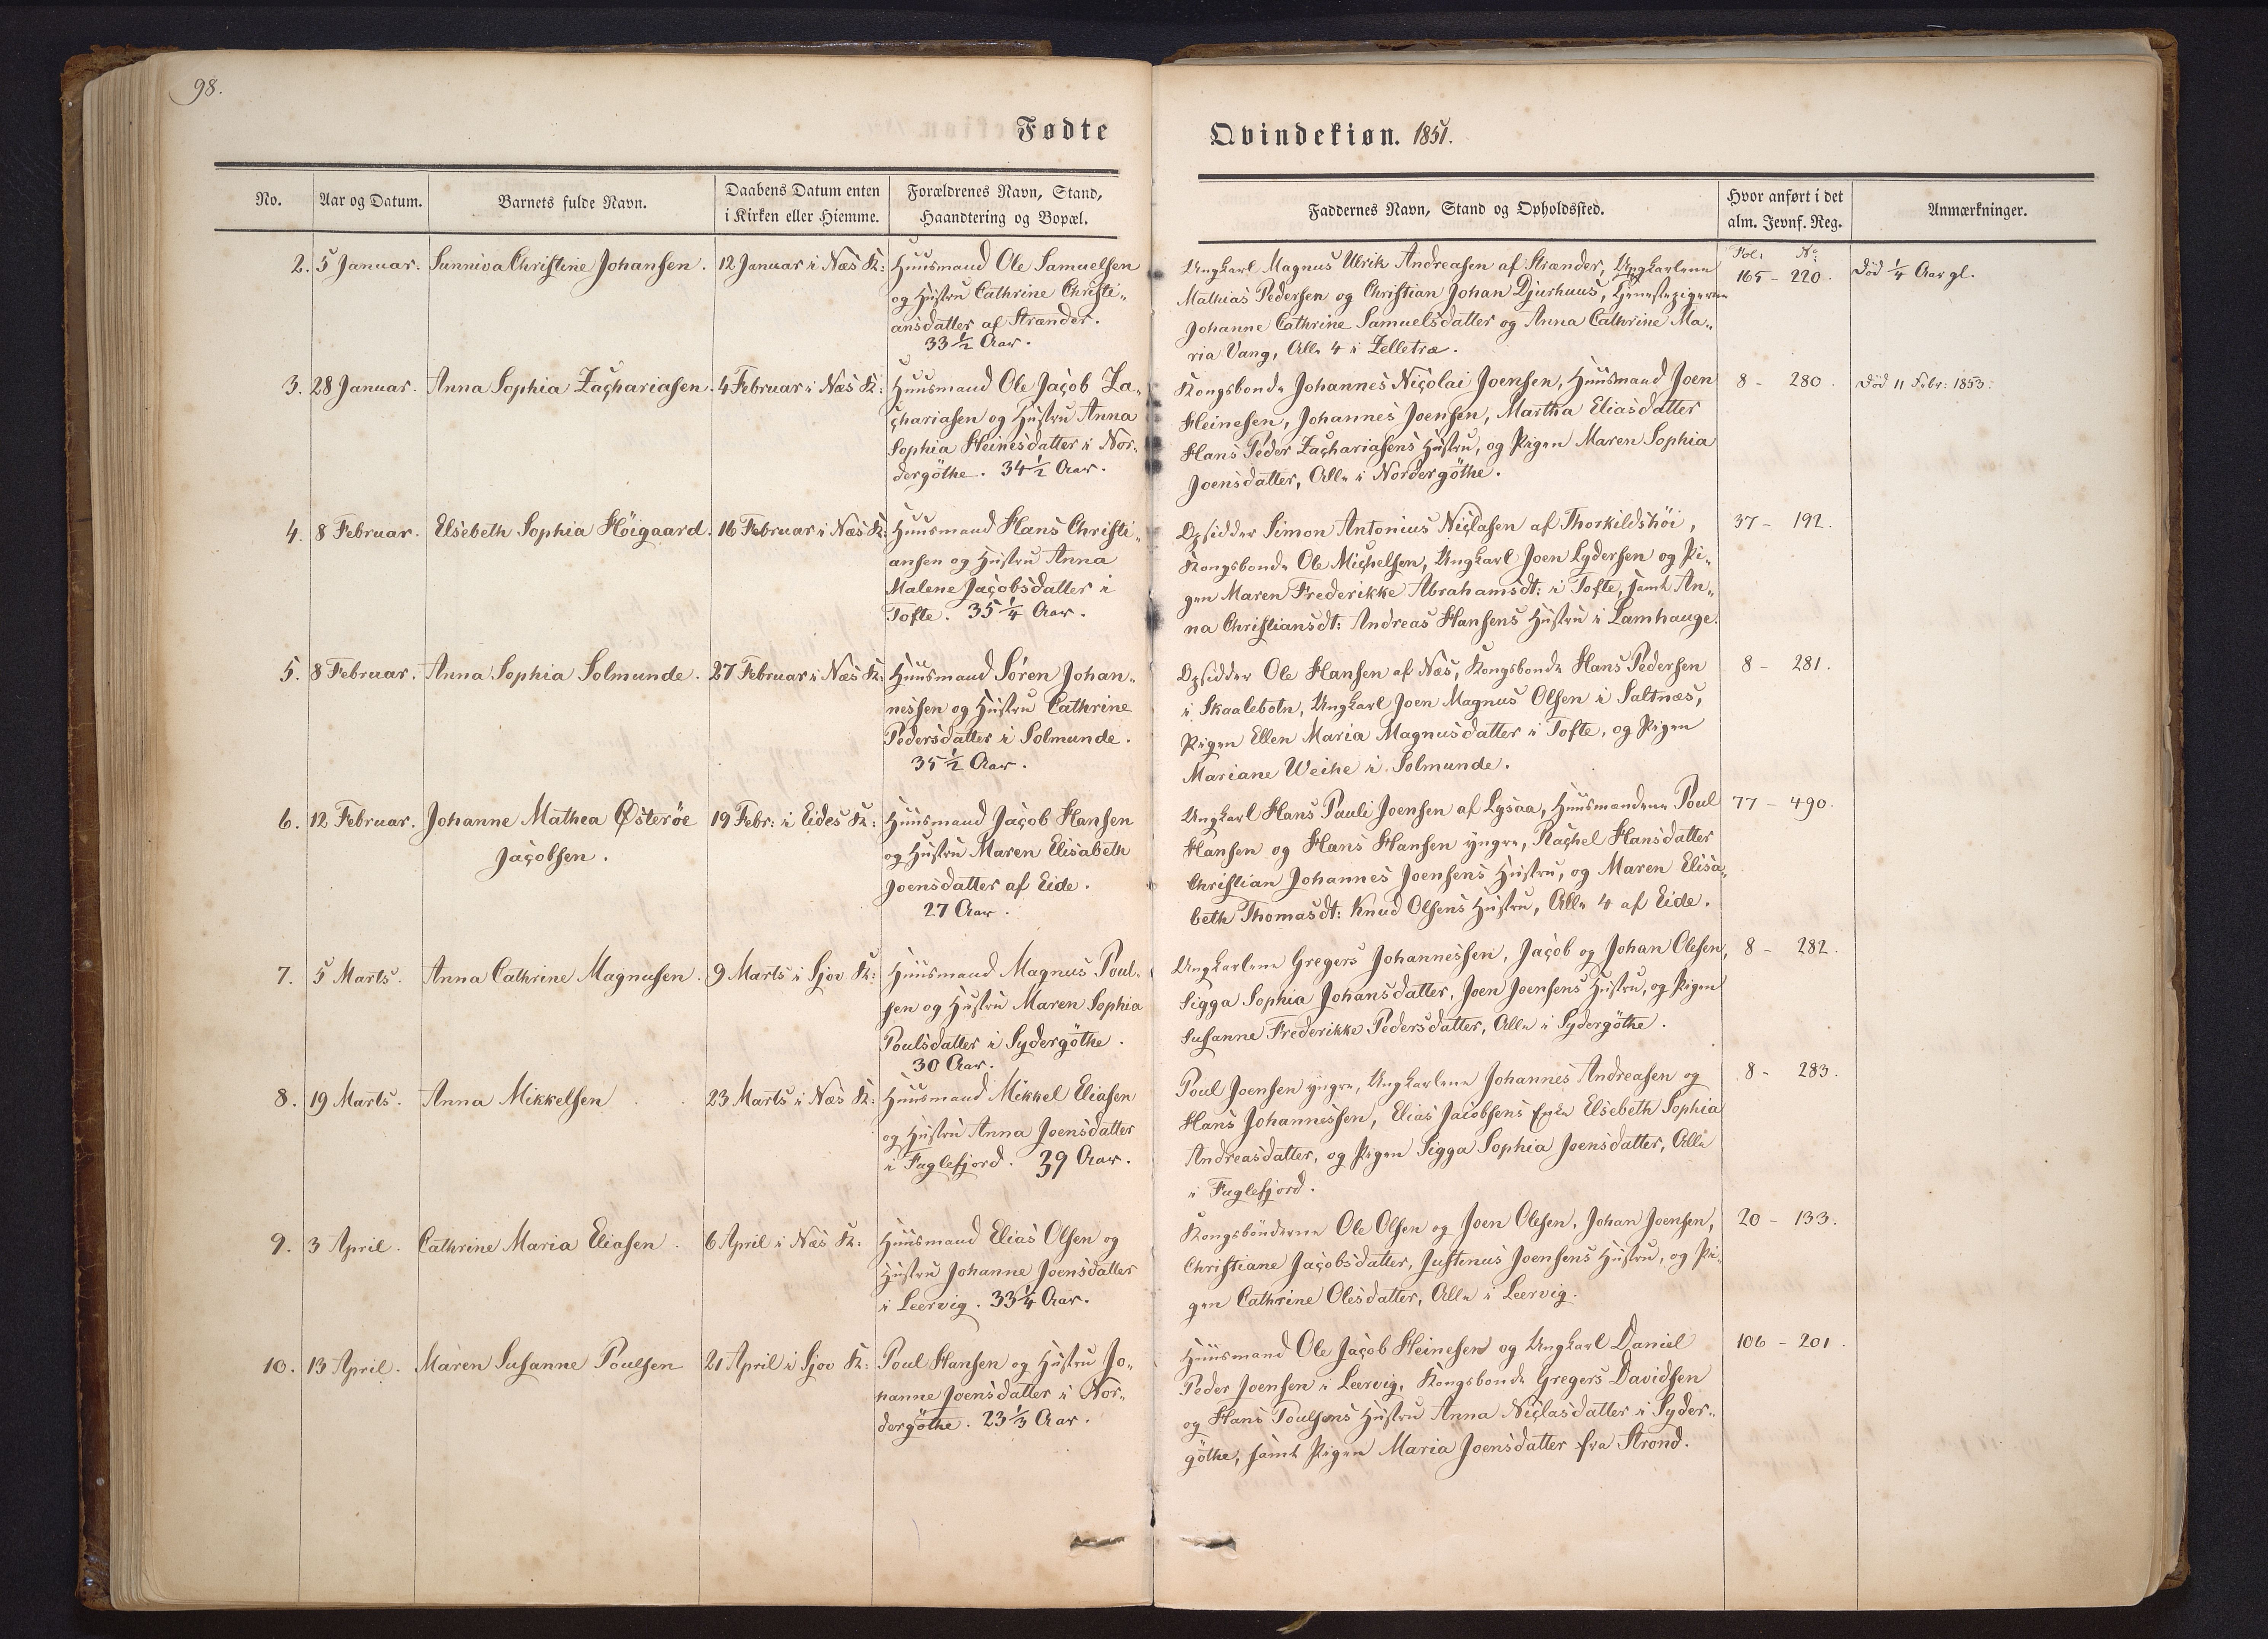 98.
Fødte
No.
Aar og Datum.
Barnets fulde Navn.
Daabens Datum enten
i Kirken eller Hiemme.
Forældrenes Navn, Stand,
Haandtering og Bopæl.
2.
5 Januar.
Sunniva Christine Johansen.
12 Januar i Næs K:
Huusmand Ole Samuelsen
og Hustru Cathrine Christi-
ansdatter af Strænder.
33 1/2 Aar.
3.
28 Januar.
Anna Sophia Zachariasen.
4 Februar i Næs K:
Huusmand Ole Jacob Za-
chariasen og Hustru Anna
Sophia Heinesdatter i Nor-
dergöthe. 34 1/2 Aar.
4.
8 Februar.
Elsebeth Sophia Höigaard.
16 Februar i Næs K:
Huusmand Hans Christi-
ansen og Hustru Anna
Malene Jacobsdatter i
Tofte. 35 1/4 Aar.
5.
8 Februar.
Anna Sophia Solmunde.
27 Februar i Næs K:
Huusmand Sören Johan-
nessen og Hustru Cathrine
Pedersdatter i Solmunde.
35 1/2 Aar.
6.
12 Februar.
Johanne Mathea Østeröe
Jacobsen.
19 Febr: i Eides K:
Huusmand Jacob Hansen
og Hustru Maren Elisabeth
Joensdatter af Eide.
27 Aar.
7.
5 Marts.
Anna Cathrine Magnusen.
9 Marts i Sjov K:
Huusmand Magnus Poul-
sen og Hustru Maren Sophia
Poulsdatter i Sydergöthe.
30 Aar.
8.
19 Marts.
Anna Mikkelsen
23 Marts i Næs K:
Huusmand Mikkel Eliasen
og Hustru Anna Joensdatter
i Fuglefjord. 39 Aar.
9.
3 April.
Cathrine Maria Eliasen
6 April i Næs K:
Huusmand Elias Olsen og
Hustru Johanne Joensdatter
i Leervig. 33 1/4 Aar.
10.
13 April.
Maren Susanne Poulsen
21 April i Sjov K:
Poul Hansen og Hustru Jo-
hanne Joensdatter i Nor-
dergöthe. 23 1/3 Aar.
Qvindekiøn. 1851.
Faddernes Navn, Stand og Opholdssted.
Hvor anført i det
alm. Jevnf. Reg.
Anmærkninger.
Ungkarl Magnus Ulrik Andreasen af Strænder, Ungkarlene
Mathias Pedersen og Christian Johan Djurhuus, Tjenestepigerne
Johanne Cathrine Samuelsdatter og Anna Cathrine Ma-
ria Vang, Alle 4 i Zelletræ.
Fol. No:
165 - 220.
Död 1/4 Aar gl.
Kongsbonde Johannes Nicolai Joensen, Huusmand Joen
Heinesen, Johannes Joensen, Martha Eliasdatter
Hans Peder Zachariasens Hustru, og Pigen Maren Sophia
Joensdatter, Alle i Nordergöthe.
8 - 280.
död 11 Febr: 1853.
Opsidder Simon Antonius Niclasen af Thorkildshöi,
Kongsbonde Ole Michelsen, Ungkarl Joen Lydersen og Pi-
gen Maren Frederikke Abrahamsdt: i Tofte, samt An-
na Christiansdt: Andreas Hansens Hustru i Lamhauge.
37 - 192.
Opsidder Ole Hansen af Næs, Kongsbonde Hans Pedersen
i Skaalebotn, Ungkarl Joen Magnus Olsen i Saltnæs,
Pigen Ellen Maria Magnusdatter i Tofte, og Pigen
Mariane Weihe i Solmunde.
8 - 281.
Ungkarl Hans Pauli Joensen af Lysaa, Huusmændene Poul
Hansen og Hans Hansen yngre, Rachel Hansdatter
Christian Johannes Joensens Hustru, og Maren Elisa-
beth Thomasdt: Knud Olsens Hustru, Alle 4 af Eide.
77 - 490.
Ungkarlene Gregers Johannessen, Jacob og Johan Olesen,
Sigga Sophia Johansdatter, Joen Joensens Hustru, og Pigen
Susanne Frederikke Pedersdatter, Alle i Sydergöthe.
8 - 282.
Poul Joensen yngre, Ungkarlene Johannes Andreasen og
Hans Johannessen, Elias Jacobsens Enke Elsebeth Sophia
Andreasdatter, og Pigen Sigga Sophia Joensdatter, Alle
i Fuglefjord.
8 - 283.
Kongsbönderne Ole Olsen og Joen Olesen, Johan Joensen,
Christiane Jacobsdatter, Justinus Joensens Hustru, og Pi-
gen Cathrine Olesdatter, Alle i Leervig.
20 - 133.
Huusmand Ole Jacob Heinesen og Ungkarl Daniel
Peder Joensen i Leervig, Kongsbonde Gregers Davidsen
og Hans Poulsens Hustru Anna Niclasdatter i Syder-
göthe, samt Pigen Maria Joensdatter fra Strond.
106 - 201.